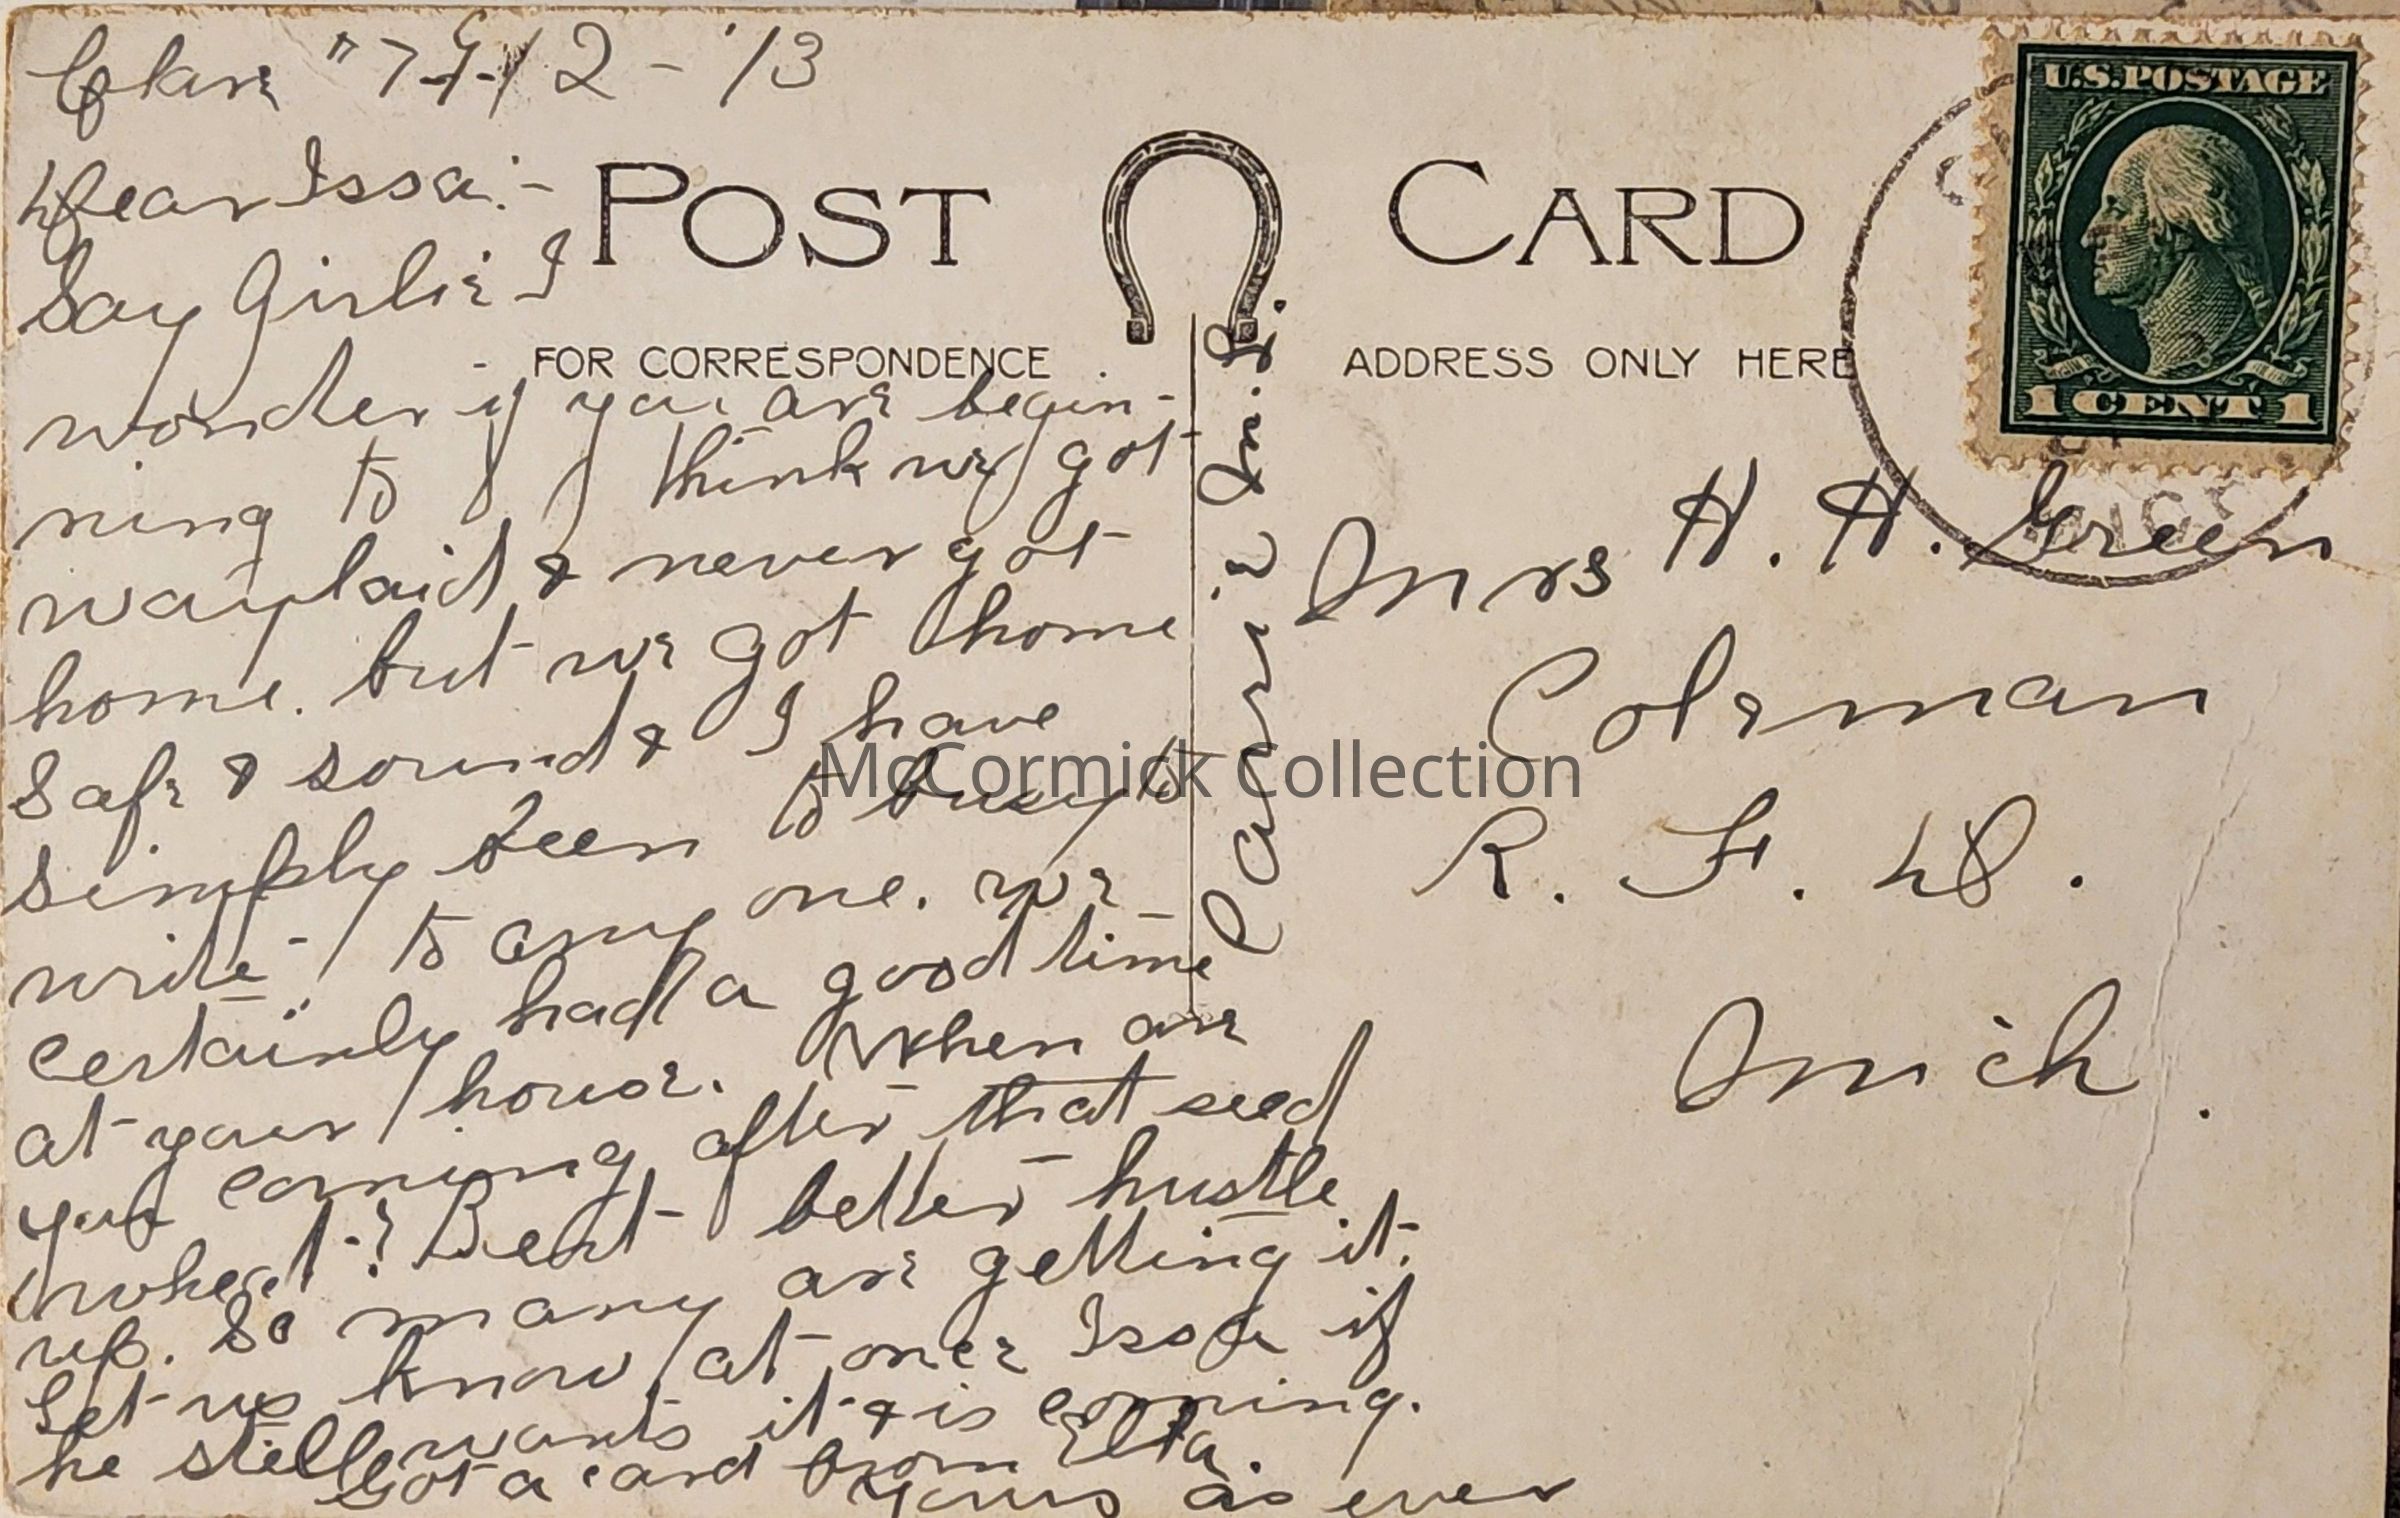 Clare "7-9-12-'13
Dear Issa:-
Say Girlie I
wonder if you are begin-
ning to think we got
waylaid & never got
home. but we got home
safe & sound & I have
simply been to busy to
write to any one. we
certainly had a good time
at your house. When are
you coming after that seed
wheat? Bert better hustle
up. So many are getting it.
Let us know at once Issa if
he still wants it & is coming.
Got a card from Etta.
Yours as ever
Fannie M. L.
POST CARD
FOR CORRESPONDENCE
ADDRESS ONLY HERE
U.S. POSTAGE
1 CENT 1
Mrs H. H. Green
Coleman
R. F. D.
Mich.
McCormick Collection